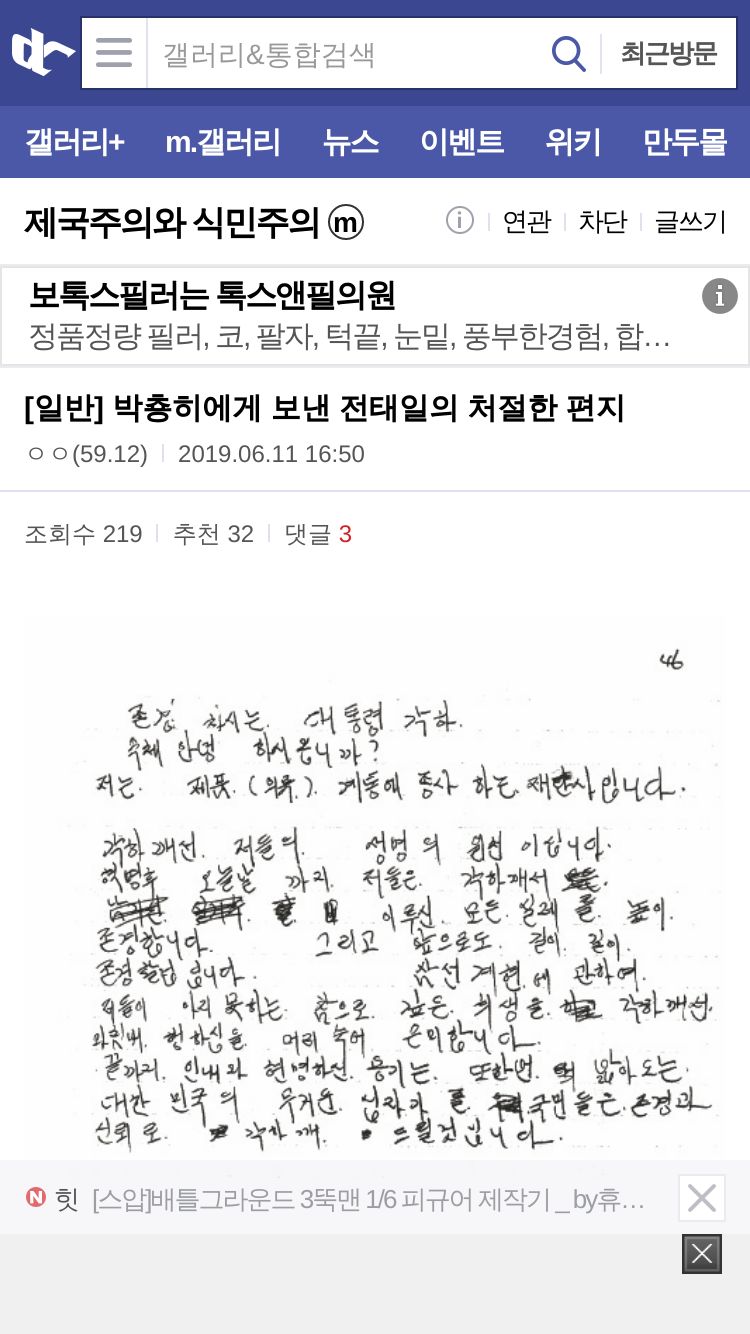 갤러리&통합검색
최근방문
갤러리+ m.갤러리 뉴스 이벤트 위키 만두몰
제국주의와 식민주의 ⓜ 연관 차단 글쓰기
보톡스필러는 톡스앤필의원
정품정량 필러, 코, 팔자, 턱끝, 눈밑, 풍부한경험, 합…
[일반] 박춍히에게 보낸 전태일의 처절한 편지
ㅇㅇ(59.12) 2019.06.11 16:50
조회수 219 추천 32 댓글 3
46
존경 하시는. 대통령 각하.
옥체 안녕 하시옵니까?
저는. 제품. (의류). 계통에 종사 하는. 재단사입니다.
각하께선. 저들의. 생명의 원천 이십니다.
혁명후 오늘날 까지. 저들은. 각하께서
이루신. 모든. 일레 를. 높이.
존경합니다. 그리고 앞으로도. 길이. 길이.
존경 할겁니다. 삼선 개헌.에 관하여.
저들이 아지 못하는. 참으로. 깊은. 희생을. 각하께선.
행하심을. 머리 숙여 은미합니다.
끝까지. 인내와 현명하신. 용기는. 또한번. 밝아오는.
대한 민국의 무거운. 십자가 를. 국민들은. 존경과
신뢰로. 각하께. 드릴것입니다.
N 힛 [스압]배틀그라운드 3뚝맨 1/6 피규어 제작기 _ by휴…